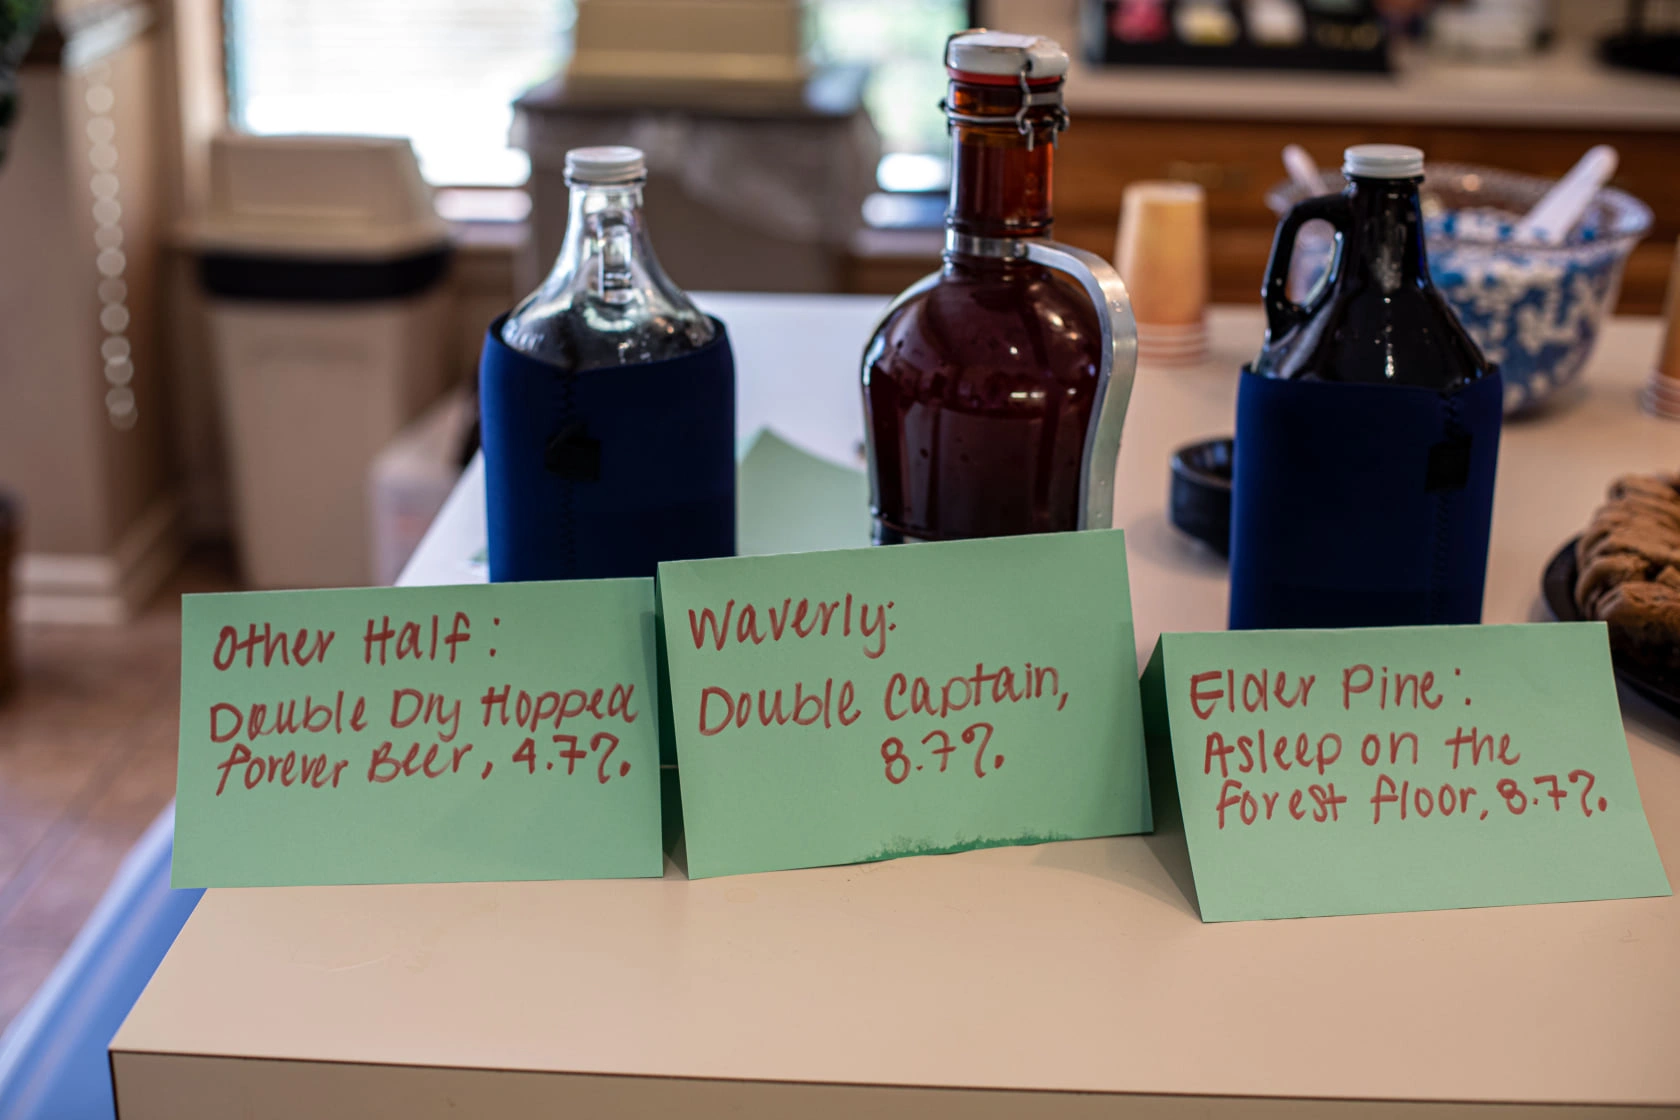 Other Half:
Double Dry Hopped
forever Beer, 4.7%.
Waverly:
Double Captain,
8.7%.
Elder Pine:
Asleep on the
forest floor, 8.7%.